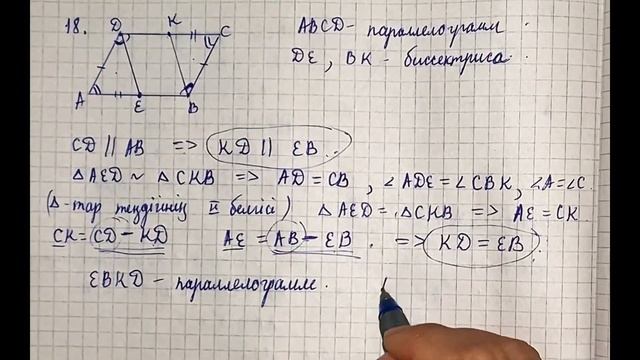 18.
D K C
A E B
ABCD - параллелограмм
DE, BK - биссектриса
CD || AB => KD || EB.
△AED ~ △CKB => AD = CB, ∠ADE = ∠CBK, ∠A = ∠C.
(△-тар теңдігінің II белгісі) △AED = △CKB => AE = CK.
CK = CD - KD AE = AB - EB. => KD = EB
EBKD - параллелограмм.